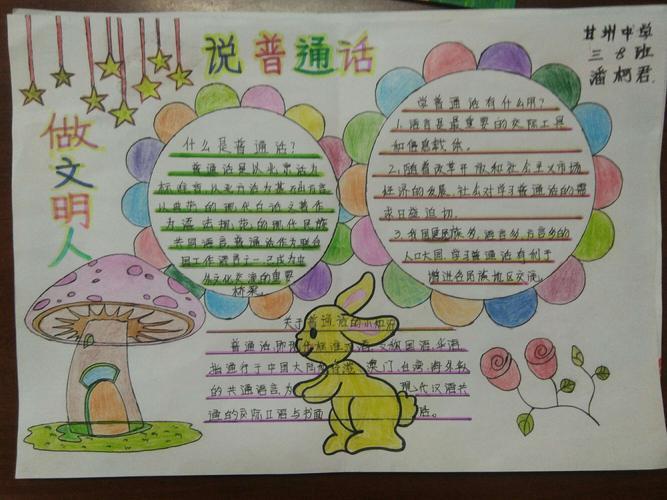 说普通话
做文明人
甘州中学
三8班
潘柯君
什么是普通话?
普通话是以北京话为
标准音,以北方话为基础方言,
以典范的现代白话文著作
为语法规范的现代民族
共同语言,普通话作为联合
国工作语言之一已成为中
外文化交流的重要
桥梁。
学普通话有什么用?
1.语言是最重要的交际工具
和信息载体。
2.随着改革开放和社会主义市场
经济的发展,社会对学习普通话的需
求日益迫切。
3.我国是民族多,语言多,方言多的
人口大国,学习普通话有利于
增进各民族地区交流。
关于普通话的小知识
普通话即现代标准汉语,又称国语,华语
指通行于中国大陆 澳门,台湾,海外华人
的共通语言,为 现代汉语共
通的交际口语与书面